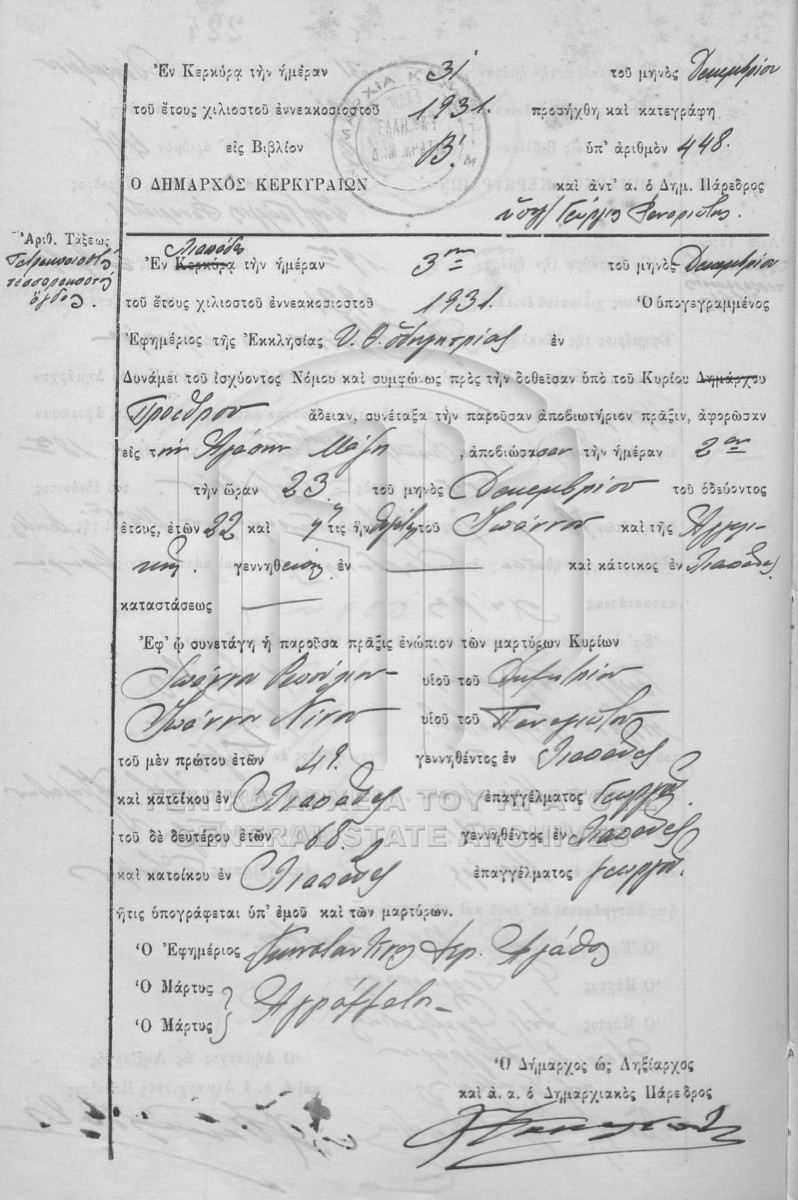 Ἐν Κερκύρᾳ τὴν ἡμέραν 31 τοῦ μηνὸς Δεκεμβρίου
τοῦ ἔτους χιλιοστοῦ ἐννεακοσιοστοῦ 1931. προσήχθη καὶ κατεγράφη
εἰς Βιβλίον Β΄. ὑπ' ἀριθμὸν 448.
Ο ΔΗΜΑΡΧΟΣ ΚΕΡΚΥΡΑΙΩΝ καὶ ἀντ' α. ὁ Δημ. Πάρεδρος
Γεώργιος
Ἀριθ. Τάξεως
Τετρακοσιοστὴ
τεσσαρακοστὴ
ὄγδοη
Λιαπάδες
Ἐν Κερκύρᾳ τὴν ἡμέραν 3ην τοῦ μηνὸς Δεκεμβρίου
τοῦ ἔτους χιλιοστοῦ ἐννεακοσιοστοῦ 1931. Ὁ ὑπογεγραμμένος
Ἐφημέριος τῆς Ἐκκλησίας Υ. Θ. Ὁδηγητρίας ἐν
Δυνάμει τοῦ ἰσχύοντος Νόμου καὶ συμφώνως πρὸς τὴν δοθεῖσαν ὑπὸ τοῦ Κυρίου Δημάρχου
Προέδρου ἄδειαν, συνέταξα τὴν παροῦσαν ἀποβιωτήριον πρᾶξιν, ἀφορῶσαν
εἰς τὴν Μάζη, ἀποβιώσασαν τὴν ἡμέραν 2αν
τὴν ὥραν 23 τοῦ μηνὸς Δεκεμβρίου τοῦ ὁδεύοντος
ἔτους, ἐτῶν 22 καὶ τις ἦν τοῦ Ἰωάννου καὶ τῆς Ἀγγελι-
κῆς. γεννηθεῖσα ἐν καὶ κάτοικος ἐν Λιαπάδες
καταστάσεως
Ἐφ' ᾧ συνετάγη ἡ παροῦσα πρᾶξις ἐνώπιον τῶν μαρτύρων Κυρίων
Ἰωάννου υἱοῦ τοῦ Δημητρίου
Ἰωάννου Νίνου υἱοῦ τοῦ Παναγιώτου
τοῦ μὲν πρώτου ἐτῶν 49. γεννηθέντος ἐν Λιαπάδες
καὶ κατοίκου ἐν Λιαπάδες ἐπαγγέλματος Γεωργοῦ
τοῦ δὲ δευτέρου ἐτῶν γεννηθέντος ἐν Λιαπάδες
καὶ κατοίκου ἐν Λιαπάδες ἐπαγγέλματος γεωργοῦ
ἥτις ὑπογράφεται ὑπ' ἐμοῦ καὶ τῶν μαρτύρων.
Ὁ Ἐφημέριος Κωνσταντῖνος Ἀγάθος
Ὁ Μάρτυς Ἀγράμματοι
Ὁ Μάρτυς
Ὁ Δήμαρχος ὡς Ληξίαρχος
καὶ ἀ. α. ὁ Δημαρχιακὸς Πάρεδρος
ΓΕΝΙΚΑ ΑΡΧΕΙΑ ΤΟΥ ΚΡΑΤΟΥΣ
GENERAL STATE ARCHIVES